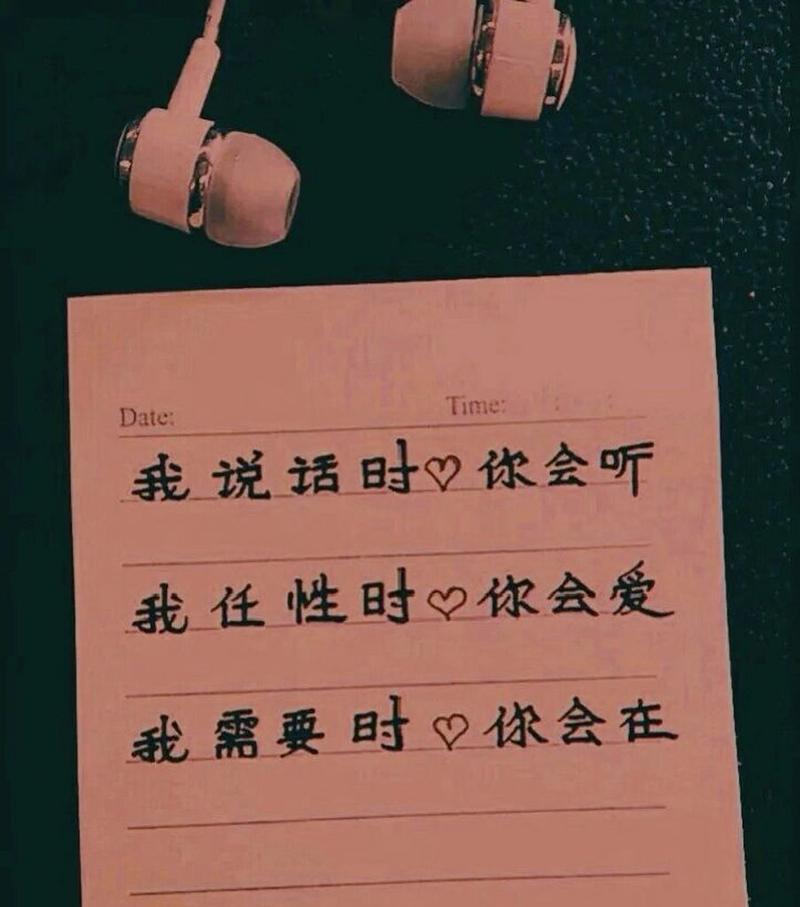 Date: Time:
我说话时♡你会听
我任性时♡你会爱
我需要时♡你会在